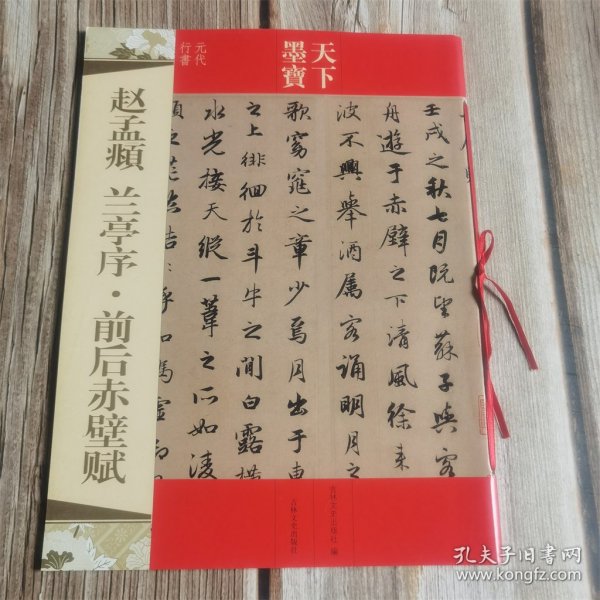 天下
墨寶
元代
行書
赵孟頫 兰亭序·前后赤壁赋
壬戌之秋七月既望蘇子與客
舟遊于赤壁之下清風徐来
波不興舉酒属客誦明月之
歌窈窕之章少焉月出于東
之上徘徊於斗牛之間白露横
水光接天縱一葦之所如凌
頃之茫然浩浩乎如馮虚御
吉林文史出版社 编
吉林文史出版社
孔夫子旧书网
www.kongfz.com